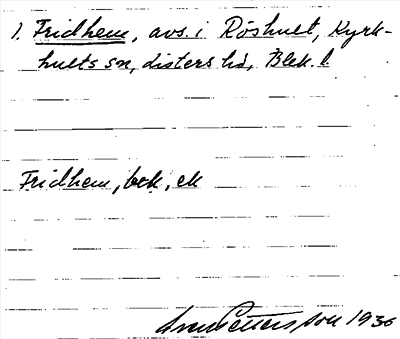 1. Fridhem, avs. i Röshult, Kyrk-
hults sn, Listers hd, Blek. l.
Fridhem, bek, ek
Sven Petersson 1936